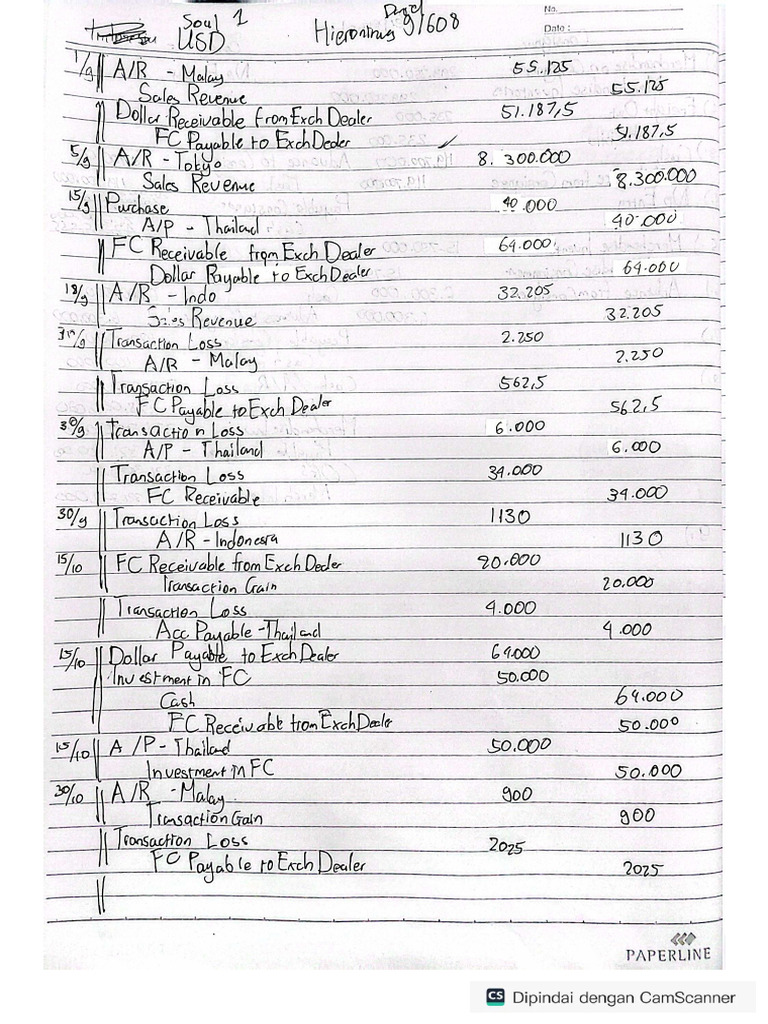 Soul 1
USD
Hieronimus 91608
No.
Date :
1/9 A/R - Malay 55.125
Sales Revenue 55.125
Dollar Receivable from Exch Dealer 51.187,5
FC Payable to Exch Deder 51.187,5
5/9 A/R - Tokyo 8.300.000
Sales Revenue 8.300.000
15/9 Purchase 40.000
A/P - Thailand 40.000
FC Receivable from Exch Dealer 64.000
Dollar Payable to Exch Dealer 64.000
18/9 A/R - Indo 32.205
Sales Revenue 32.205
30/9 Transaction Loss 2.250
A/R - Malay 2.250
Transaction Loss 562,5
FC Payable to Exch Dealer 562,5
30/9 Transaction Loss 6.000
A/P - Thailand 6.000
Transaction Loss 34.000
FC Receivable 34.000
30/9 Transaction Loss 1130
A/R - Indonesia 1130
15/10 FC Receivable from Exch Deder 20.000
Transaction Gain 20.000
Transaction Loss 4.000
Acc Payable - Thailand 4.000
15/10 Dollar Payable to Exch Dealer 64.000
Investment in FC 50.000
Cash 64.000
FC Receivable from Exch Dealer 50.000
15/10 A/P - Thailand 50.000
Investment in FC 50.000
30/10 A/R - Malay 900
Transaction Gain 900
Transaction Loss 2025
FC Payable to Exch Dealer 2025
PAPERLINE
CS Dipindai dengan CamScanner